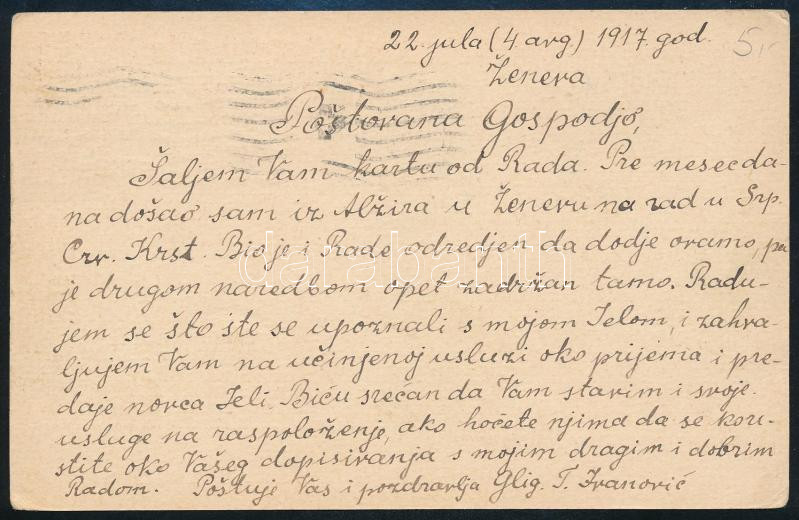 22. jula (4. avg.) 1917. god.
5,-
Ženeva
Poštovana Gospodjo,
Šaljem Vam kartu od Rada. Pre mesec da-
na došao sam iz Alžira u Ženevu na rad u Srp.
Crv. Krst. Bio je i Rade odredjen da dodje ovamo, pa
je drugom naredbom opet zadržan tamo. Radu-
jem se što ste se upoznali s mojom Jelom, i zahva-
ljujem Vam na učinjenoj usluzi oko prijema i pre-
daje novca Jeli. Biću srećan da Vam stavim i svoje
usluge na raspoloženje, ako hoćete njima da se kori-
stite oko Vašeg dopisivanja s mojim dragim i dobrim
Radom. Poštuje Vas i pozdravlja Glig. T. Ivanović
darabanth